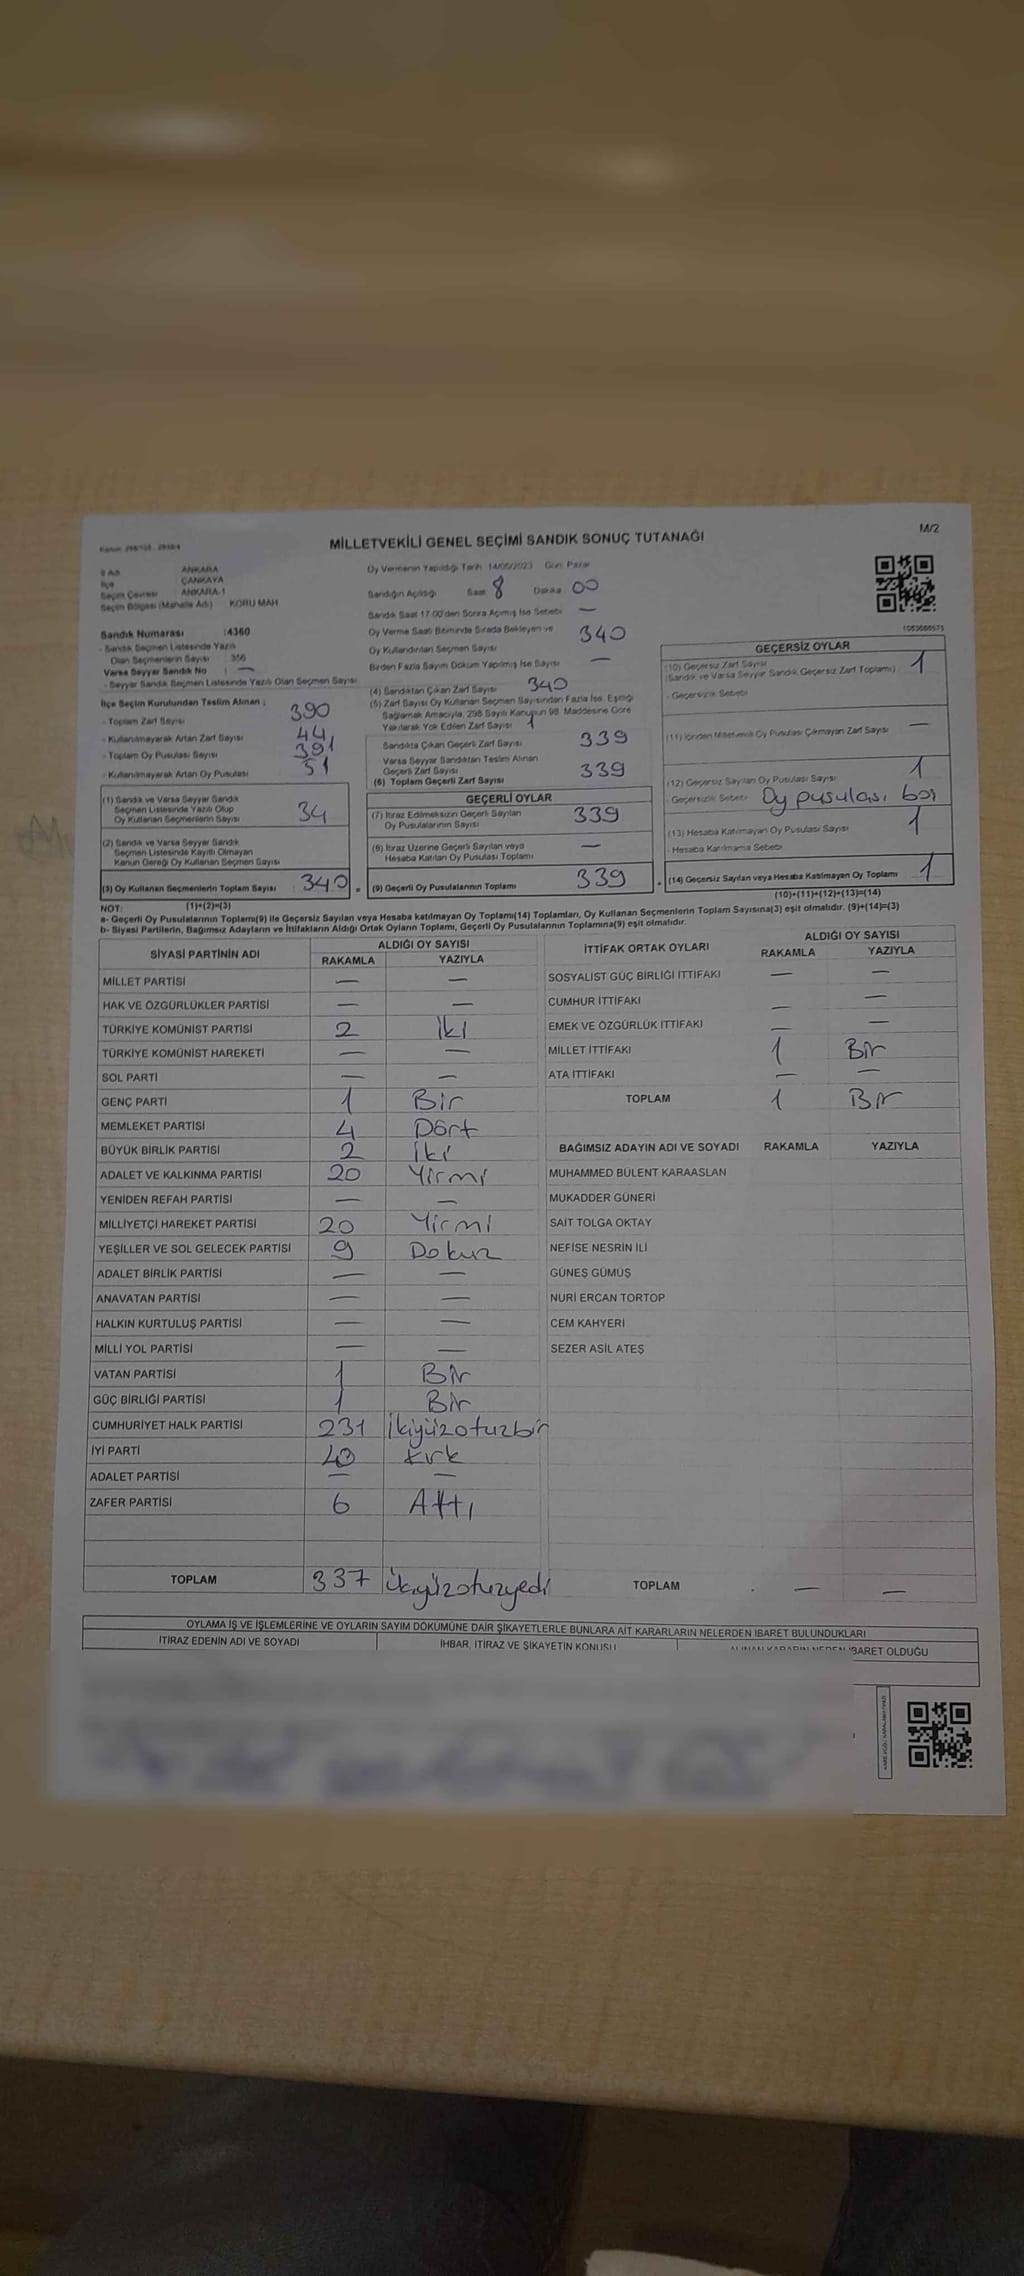 M/2
MİLLETVEKİLİ GENEL SEÇİMİ SANDIK SONUÇ TUTANAĞI
İl Adı ANKARA
İlçe ÇANKAYA
Seçim Çevresi ANKARA-1
Seçim Bölgesi (Mahalle Adı) KORU MAH
Oy Vermenin Yapıldığı Tarih 14/05/2023 Gün Pazar
Sandığın Açıldığı Saat 8 Dakika 00
Sandık Saat 17:00'den Sonra Açımış İse Sebebi —
Oy Verme Saati Bitiminde Sırada Bekleyen ve
Oy Kullandırılan Seçmen Sayısı 340
Birden Fazla Sayım Döküm Yapılmış İse Sayısı —
Sandık Numarası :4360
- Sandık Seçmen Listesinde Yazılı
Olan Seçmenlerin Sayısı : 356
Varsa Seyyar Sandık No : —
- Seyyar Sandık Seçmen Listesinde Yazılı Olan Seçmen Sayısı
İlçe Seçim Kurulundan Teslim Alınan :
- Toplam Zarf Sayısı 390
- Kullanılmayarak Artan Zarf Sayısı 44
- Toplam Oy Pusulası Sayısı 391
- Kullanılmayarak Artan Oy Pusulası 51
(1) Sandık ve Varsa Seyyar Sandık
Seçmen Listesinde Yazılı Olup
Oy Kullanan Seçmenlerin Sayısı 34
(2) Sandık ve Varsa Seyyar Sandık
Seçmen Listesinde Kayıtlı Olmayan
Kanun Gereği Oy Kullanan Seçmen Sayısı
(3) Oy Kullanan Seçmenlerin Toplam Sayısı 340
(1)+(2)=(3)
(4) Sandıktan Çıkan Zarf Sayısı 340
(5) Zarf Sayısı Oy Kullanan Seçmen Sayısından Fazla İse, Eşitliği
Sağlamak Amacıyla, 298 Sayılı Kanunun 98. Maddesine Göre
Yakılarak Yok Edilen Zarf Sayısı 1
Sandıkta Çıkan Geçerli Zarf Sayısı 339
Varsa Seyyar Sandıktan Teslim Alınan
Geçerli Zarf Sayısı
(6) Toplam Geçerli Zarf Sayısı 339
GEÇERLİ OYLAR
(7) İtiraz Edilmeksizin Geçerli Sayılan
Oy Pusulalarının Sayısı 339
(8) İtiraz Üzerine Geçerli Sayılan veya
Hesaba Katılan Oy Pusulası Toplamı —
(9) Geçerli Oy Pusulalarının Toplamı 339
1053686575
GEÇERSİZ OYLAR
(10) Geçersiz Zarf Sayısı
(Sandık ve Varsa Seyyar Sandık Geçersiz Zarf Toplamı) 1
- Geçersizlik Sebebi
(11) İçinden Milletvekili Oy Pusulası Çıkmayan Zarf Sayısı —
(12) Geçersiz Sayılan Oy Pusulası Sayısı 1
- Geçersizlik Sebebi Oy pusulası boş
(13) Hesaba Katılmayan Oy Pusulası Sayısı 1
- Hesaba Katılmama Sebebi
(14) Geçersiz Sayılan veya Hesaba Katılmayan Oy Toplamı 1
(10)+(11)+(12)+(13)=(14)
NOT:
a- Geçerli Oy Pusulalarının Toplamı(9) ile Geçersiz Sayılan veya Hesaba katılmayan Oy Toplamı(14) Toplamları, Oy Kullanan Seçmenlerin Toplam Sayısına(3) eşit olmalıdır. (9)+(14)=(3)
b- Siyasi Partilerin, Bağımsız Adayların ve İttifakların Aldığı Ortak Oyların Toplamı, Geçerli Oy Pusulalarının Toplamına(9) eşit olmalıdır.
SİYASİ PARTİNİN ADI ALDIĞI OY SAYISI
RAKAMLA YAZIYLA
MİLLET PARTİSİ — —
HAK VE ÖZGÜRLÜKLER PARTİSİ — —
TÜRKİYE KOMÜNİST PARTİSİ 2 İki
TÜRKİYE KOMÜNİST HAREKETİ — —
SOL PARTİ — —
GENÇ PARTİ 1 Bir
MEMLEKET PARTİSİ 4 Dört
BÜYÜK BİRLİK PARTİSİ 2 İki
ADALET VE KALKINMA PARTİSİ 20 Yirmi
YENİDEN REFAH PARTİSİ — —
MİLLİYETÇİ HAREKET PARTİSİ 20 Yirmi
YEŞİLLER VE SOL GELECEK PARTİSİ 9 Dokuz
ADALET BİRLİK PARTİSİ — —
ANAVATAN PARTİSİ — —
HALKIN KURTULUŞ PARTİSİ — —
MİLLİ YOL PARTİSİ — —
VATAN PARTİSİ 1 Bir
GÜÇ BİRLİĞİ PARTİSİ 1 Bir
CUMHURİYET HALK PARTİSİ 231 İkiyüzotuzbir
İYİ PARTİ 40 Kırk
ADALET PARTİSİ — —
ZAFER PARTİSİ 6 Altı
TOPLAM 337 ikiyüzotuzyedi
İTTİFAK ORTAK OYLARI ALDIĞI OY SAYISI
RAKAMLA YAZIYLA
SOSYALİST GÜÇ BİRLİĞİ İTTİFAKI — —
CUMHUR İTTİFAKI — —
EMEK VE ÖZGÜRLÜK İTTİFAKI — —
MİLLET İTTİFAKI 1 Bir
ATA İTTİFAKI — —
TOPLAM 1 Bir
BAĞIMSIZ ADAYIN ADI VE SOYADI RAKAMLA YAZIYLA
MUHAMMED BÜLENT KARAASLAN
MUKADDER GÜNERİ
SAİT TOLGA OKTAY
NEFİSE NESRİN İLİ
GÜNEŞ GÜMÜŞ
NURİ ERCAN TORTOP
CEM KAHYERİ
SEZER ASİL ATEŞ
TOPLAM — —
OYLAMA İŞ VE İŞLEMLERİNE VE OYLARIN SAYIM DÖKÜMÜNE DAİR ŞİKAYETLERLE BUNLARA AİT KARARLARIN NELERDEN İBARET BULUNDUKLARI
İTİRAZ EDENİN ADI VE SOYADI
İHBAR, İTİRAZ VE ŞİKAYETİN KONUSU
ALINAN KARARIN NEDEN İBARET OLDUĞU